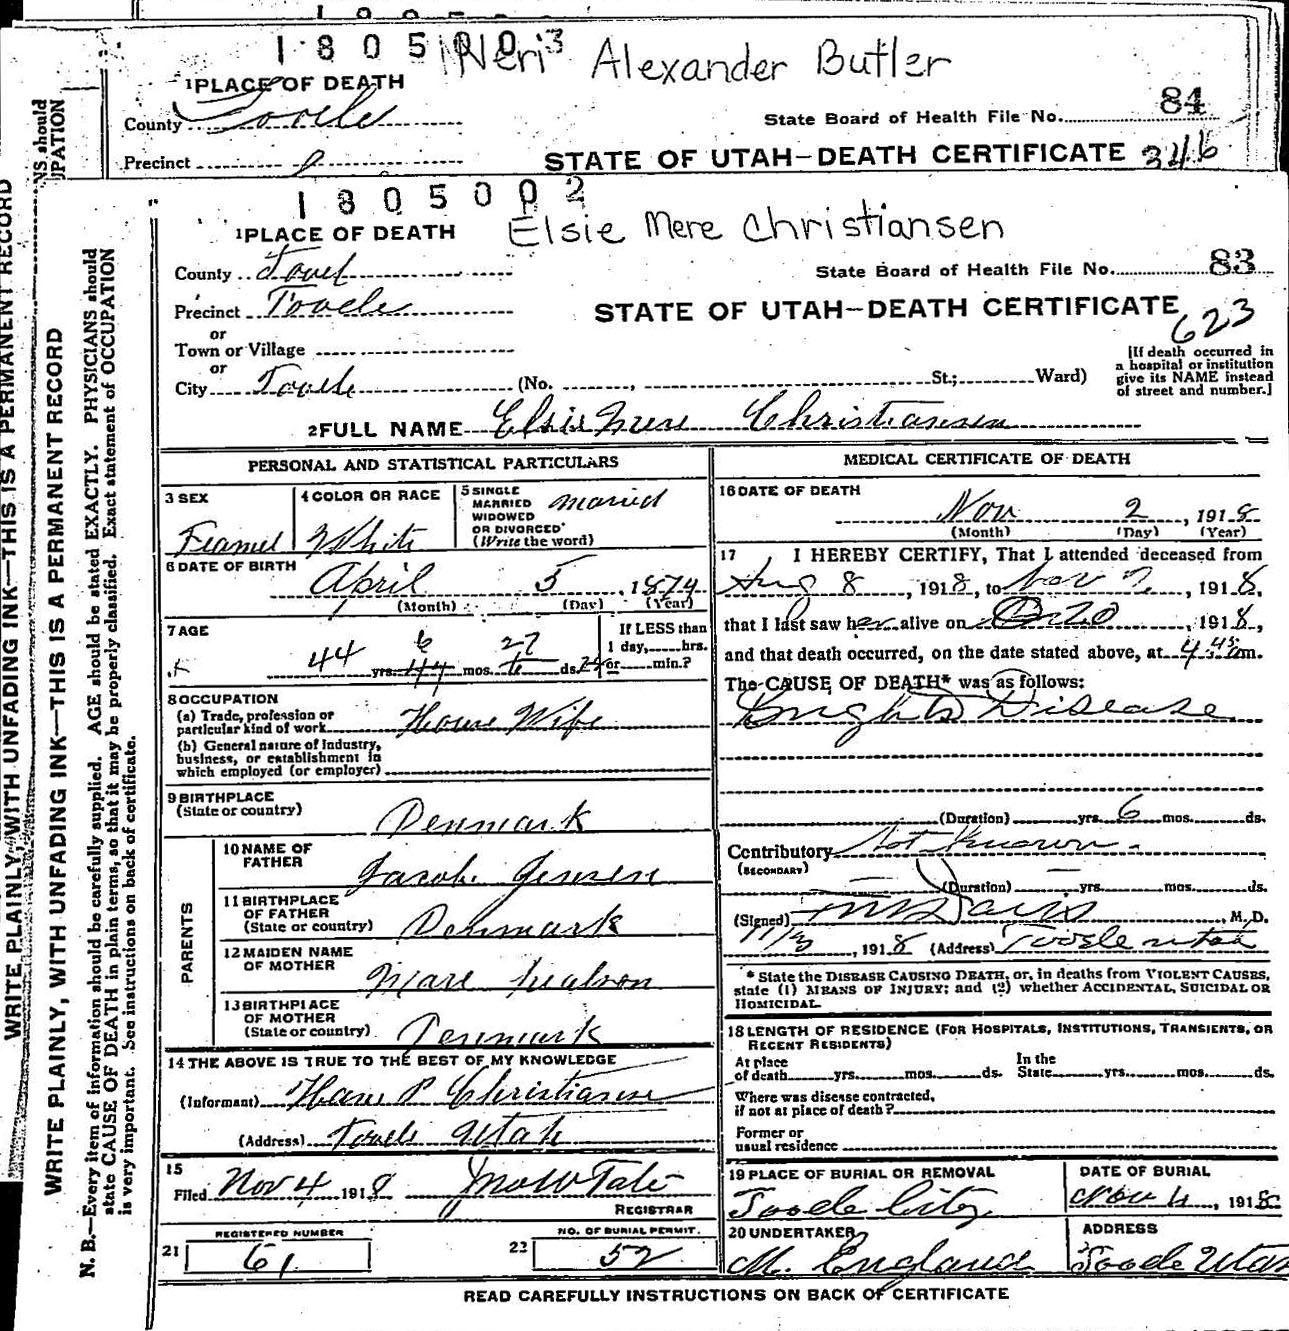 1805003
Neri Alexander Butler
1 PLACE OF DEATH
County Tooele
State Board of Health File No. 84
Precinct
STATE OF UTAH—DEATH CERTIFICATE 346
1805002
1 PLACE OF DEATH Elsie Mere Christiansen
County Tooel
State Board of Health File No. 83
Precinct Tooele
STATE OF UTAH—DEATH CERTIFICATE
623
or
Town or Village
or
City Tooele (No. , St.; Ward)
[If death occurred in
a hospital or institution
give its NAME instead
of street and number.]
2 FULL NAME Elsie Christiansen
PERSONAL AND STATISTICAL PARTICULARS
3 SEX
Feamel
4 COLOR OR RACE
White
5 SINGLE
MARRIED
WIDOWED
OR DIVORCED
(Write the word)
Maried
6 DATE OF BIRTH
April 5, 1874
(Month) (Day) (Year)
7 AGE
44 yrs. 6 mos. 27 ds.
If LESS than
1 day, hrs.
or min.?
8 OCCUPATION
(a) Trade, profession or
particular kind of work House Wife
(b) General nature of industry,
business, or establishment in
which employed (or employer)
9 BIRTHPLACE
(State or country)
Denmark
PARENTS
10 NAME OF
FATHER
Jacob Jensen
11 BIRTHPLACE
OF FATHER
(State or country)
Denmark
12 MAIDEN NAME
OF MOTHER
Mare
13 BIRTHPLACE
OF MOTHER
(State or country)
Denmark
14 THE ABOVE IS TRUE TO THE BEST OF MY KNOWLEDGE
(Informant) Hans P Christiansen
(Address) Tooele Utah
15
Filed Nov 4 1918
REGISTRAR
REGISTERED NUMBER
21 61
NO. OF BURIAL PERMIT.
22 52
MEDICAL CERTIFICATE OF DEATH
16 DATE OF DEATH
Nov 2, 1918
(Month) (Day) (Year)
17 I HEREBY CERTIFY, That I attended deceased from
Aug 8, 1918, to Nov 2, 1918,
that I last saw her alive on 20, 1918,
and that death occurred, on the date stated above, at 4.45 m.
The CAUSE OF DEATH* was as follows:
Brights Disease
(Duration) yrs. 6 mos. ds.
Contributory Not Known
(SECONDARY)
(Duration) yrs. mos. ds.
(Signed) Davis, M. D.
11/3, 1918 (Address) Tooele Utah
* State the DISEASE CAUSING DEATH, or, in deaths from VIOLENT CAUSES,
state (1) MEANS OF INJURY; and (2) whether ACCIDENTAL, SUICIDAL OR
HOMICIDAL.
18 LENGTH OF RESIDENCE (FOR HOSPITALS, INSTITUTIONS, TRANSIENTS, OR
RECENT RESIDENTS)
At place
of death yrs. mos. ds.
In the
State yrs. mos. ds.
Where was disease contracted,
if not at place of death?
Former or
usual residence
19 PLACE OF BURIAL OR REMOVAL
Tooele City
DATE OF BURIAL
Nov 4, 1918
20 UNDERTAKER
M. England
ADDRESS
Tooele Utah
READ CAREFULLY INSTRUCTIONS ON BACK OF CERTIFICATE
WRITE PLAINLY, WITH UNFADING INK—THIS IS A PERMANENT RECORD
WRITE PLAINLY, WITH UNFADING INK—THIS IS A PERMANENT RECORD
N. B.—Every item of information should be carefully supplied. AGE should be stated EXACTLY. PHYSICIANS should
state CAUSE OF DEATH in plain terms, so that it may be properly classified. Exact statement of OCCUPATION
is very important. See instructions on back of certificate.
NS should
UPATION